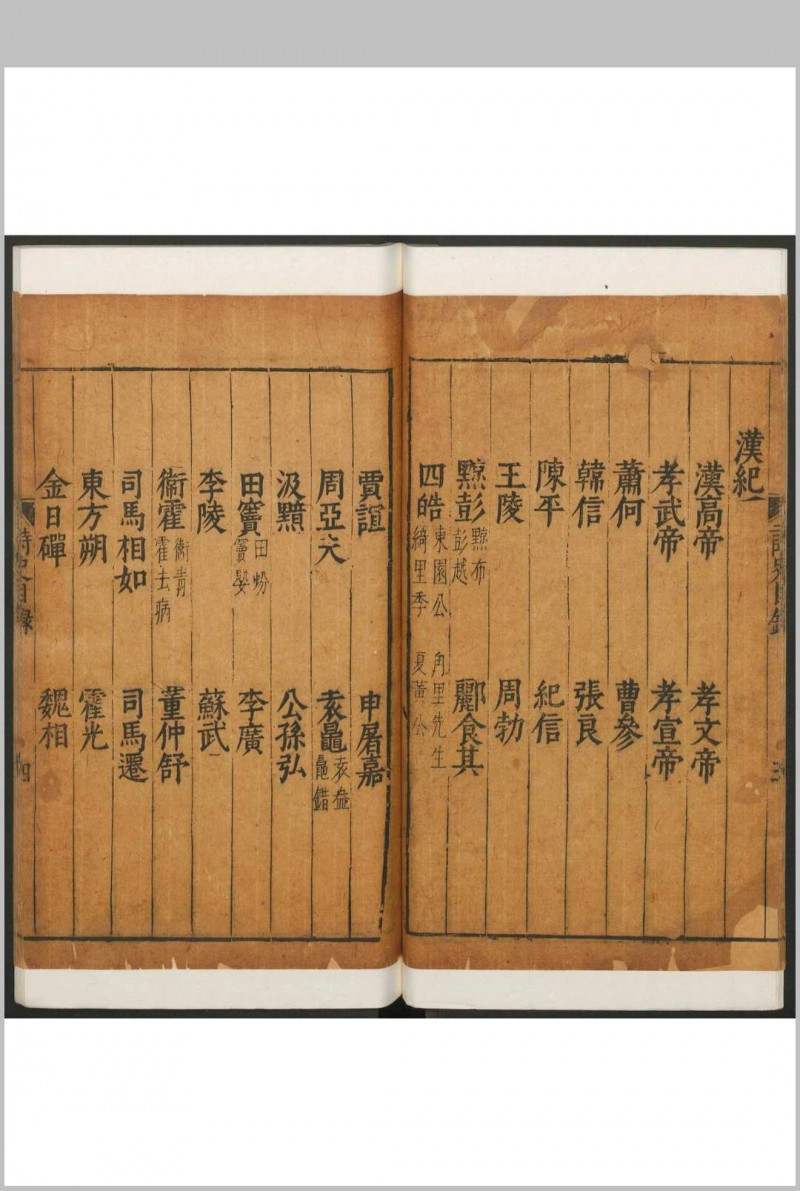 漢紀
漢高帝 孝文帝
孝武帝 孝宣帝
蕭何 曹參
韓信 張良
陳平 紀信
王陵 周勃
黥彭 黥布 彭越 酈食其
四皓 東園公 角里先生 綺里季 夏黃公
賈誼 申屠嘉
周亞夫 袁鼂 袁盎 鼂錯
汲黯 公孫弘
田竇 田蚡 竇嬰 李廣
李陵 蘇武
衞霍 衞青 霍去病 董仲舒
司馬相如 司馬遷
東方朔 霍光
金日磾 魏相
詩史目錄 四